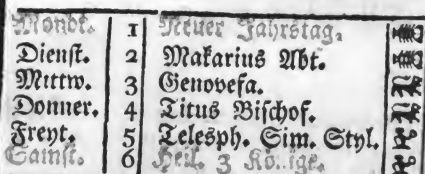 Mondt. 1 Neuer Jahrstag.
Dienst. 2 Makarius Abt.
Mittw. 3 Genovefa.
Donner. 4 Titus Bischof.
Freyt. 5 Telesph. Sim. Styl.
Samst. 6 Heil. 3 Könige.